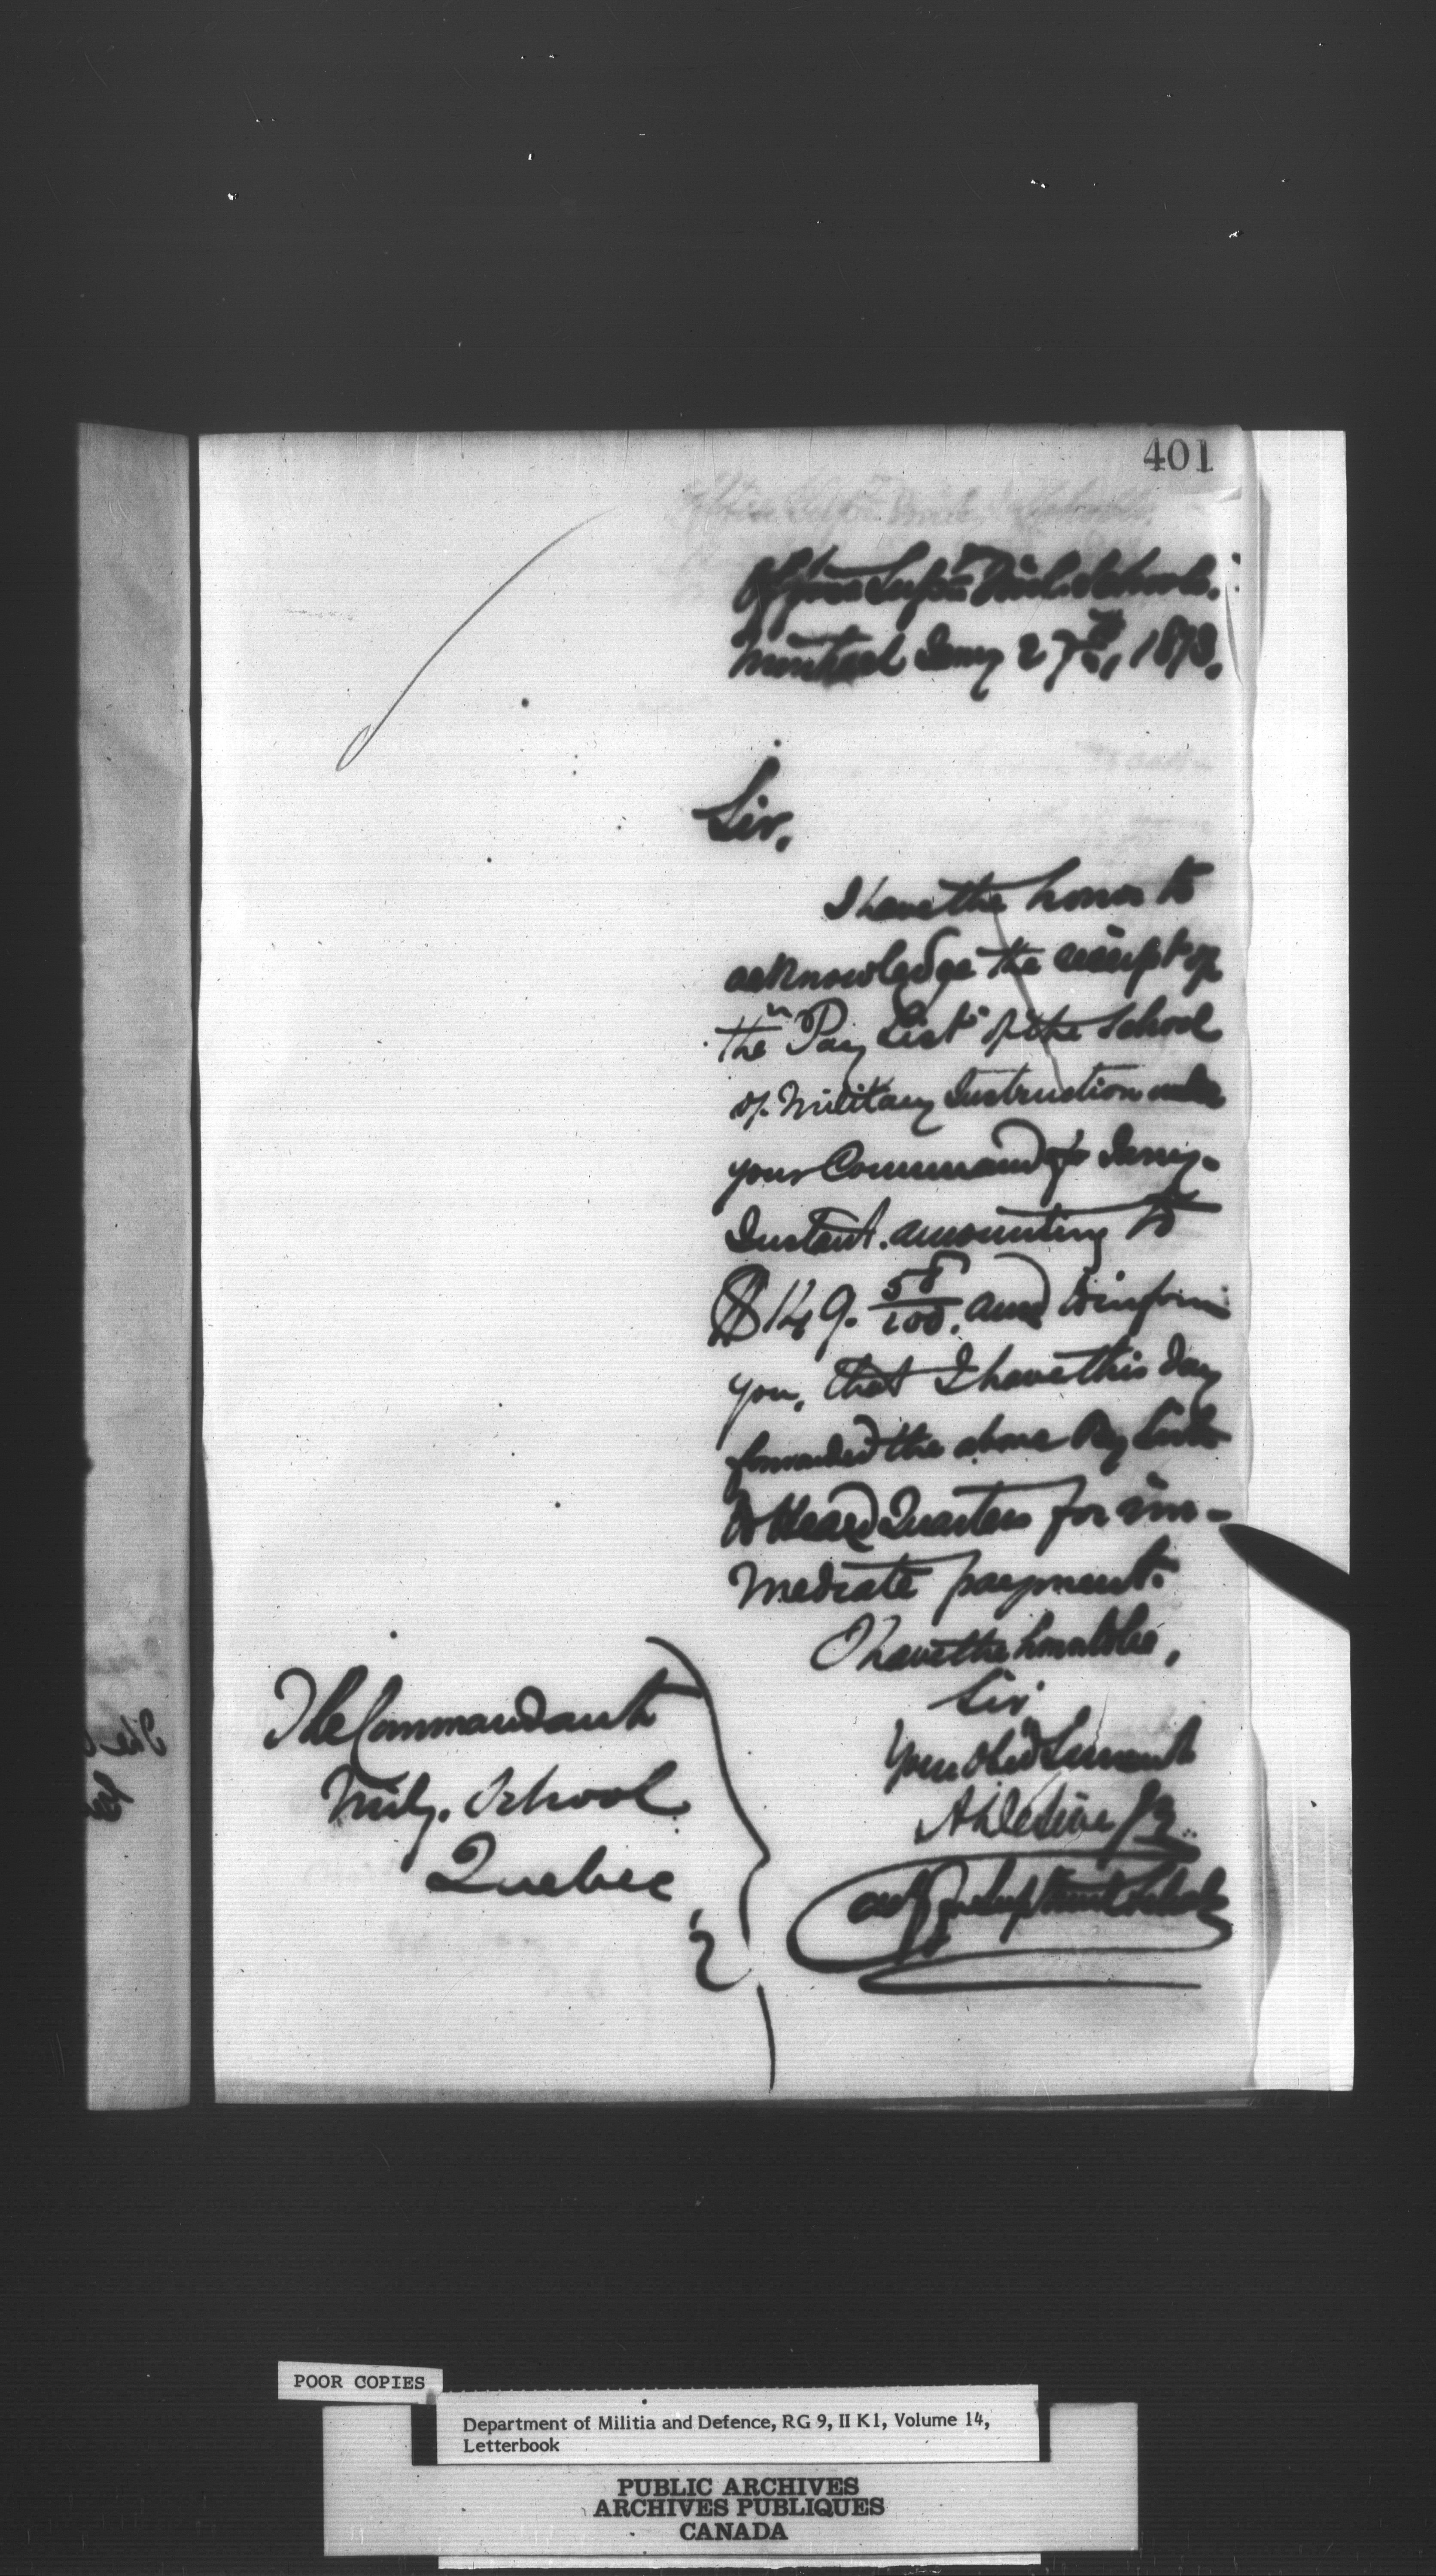 401
Office Supt Mil. Schools.
Montreal Jany 27th, 1873.
Sir,
I have the honor to
acknowledge the receipt of
the "Pay List" of the School
of Military Instruction under
your Command for Jany.
Instant. amounting to
$149. 58/100. and to inform
you, that I have this day
forwarded the above Pay List
to Head Quarters for im-
mediate payment.
I have the honor to be,
Sir
Your Obed Servant
The Commandant
Mily. School
Quebec
POOR COPIES
Department of Militia and Defence, RG 9, II K1, Volume 14,
Letterbook
PUBLIC ARCHIVES
ARCHIVES PUBLIQUES
CANADA